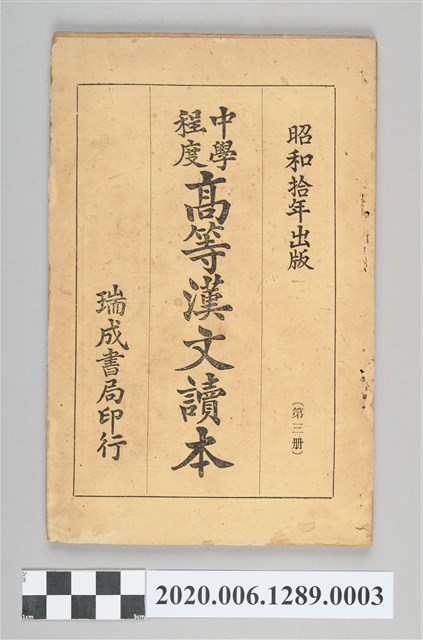 昭和拾年出版
（第三册）
中學程度
高等漢文讀本
瑞成書局印行
1cm
5cm
2020.006.1289.0003